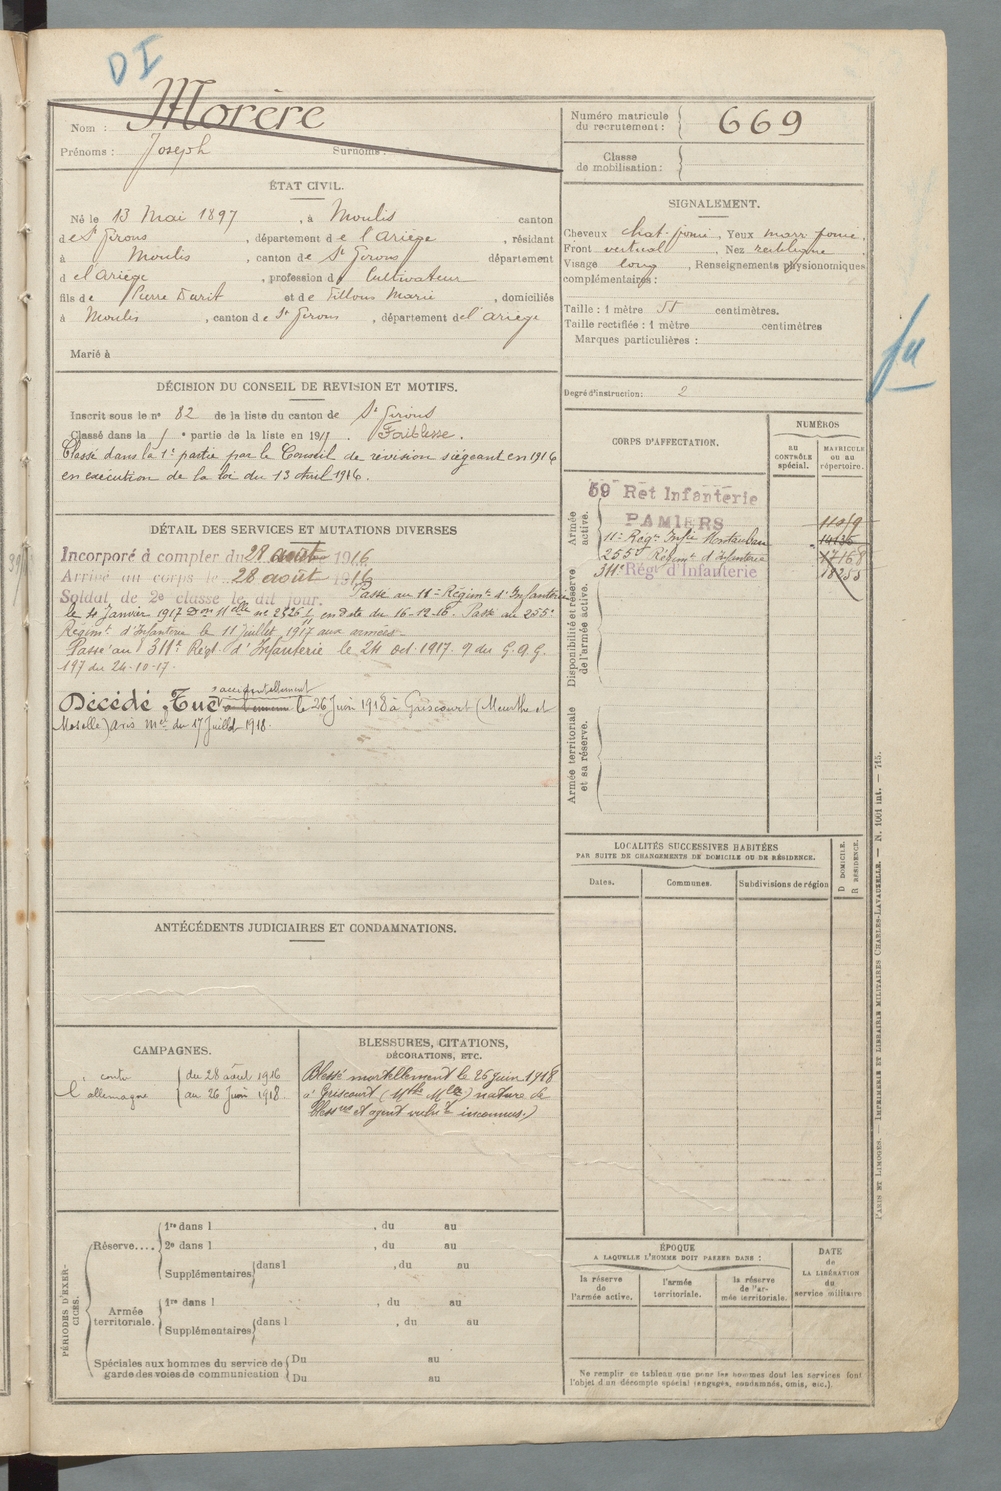 DI
Nom : Morère
Prénoms : Joseph Surnoms :
Numéro matricule du recrutement : 669
Classe de mobilisation :
ÉTAT CIVIL.
Né le 13 Mai 1897, à Moulis canton
de St Girons, département de l'Ariège, résidant
à Moulis, canton de St Girons département
d el'Ariège, profession d Cultivateur
fils de Pierre Durit et de Tillous Marie, domiciliés
à Moulis, canton de St Girons, département del'Ariège
Marié à
SIGNALEMENT.
Cheveux chat. foncé, Yeux marr foncé,
Front vertical, Nez rectiligne
Visage long, Renseignements physionomiques
complémentaires :
Taille : 1 mètre 55 centimètres.
Taille rectifiée : 1 mètre centimètres
Marques particulières :
Degré d'instruction : 2
DÉCISION DU CONSEIL DE REVISION ET MOTIFS.
Inscrit sous le n° 82 de la liste du canton de St Girons
Classé dans la 1 e partie de la liste en 191 . Faiblesse.
Classé dans la 1e partie par le Conseil de révision siégeant en 1916
en exécution de la loi du 13 Avril 1916.
DÉTAIL DES SERVICES ET MUTATIONS DIVERSES
Incorporé à compter du 28 août 1916
Arrivé au corps le 28 août 1916
Soldat de 2e classe le dit jour. Passé au 11e Régimt d'Infanterie
le 4 Janvier 1917 Don 11elle no en date du 16-12-16. Passé au 255e
Régimt d'Infanterie le 11 juillet 1917 aux armées.
Passé au 311e Régt d'Infanterie le 24 oct. 1917. 9 du G.A.G.
197 du 24-10-17.
accidentellement
Décédé, Tué le 26 Juin 1918 à Griscourt (Meurthe et
Moselle) avis mel du 17 Juillet 1918.
CORPS D'AFFECTATION.
NUMÉROS
au contrôle spécial.
matricule ou au répertoire.
Armée active.
59 Rét Infanterie
PAMIERS
11e Régt Infie Montauban
255e Régiment d'Infanterie 17168
311e Régt d'Infanterie 18255
Disponibilité et réserve de l'armée active.
Armée territoriale et sa réserve.
LOCALITÉS SUCCESSIVES HABITÉES
PAR SUITE DE CHANGEMENTS DE DOMICILE OU DE RÉSIDENCE.
Dates. Communes. Subdivisions de région
D DOMICILE.
R RÉSIDENCE.
ANTÉCÉDENTS JUDICIAIRES ET CONDAMNATIONS.
CAMPAGNES.
contre du 28 août 1916
l'allemagne au 26 Juin 1918
BLESSURES, CITATIONS,
DÉCORATIONS, ETC.
Blessé mortellement le 26 juin 1918
à Griscourt (Mthe Mlle) nature de
blessure et agent vulnt inconnus.)
PÉRIODES D'EXERCICES.
Réserve.... 1re dans l , du au
2e dans l , du au
Supplémentaires dans l , du au
Armée territoriale. 1re dans l , du au
Supplémentaires dans l , du au
Spéciales aux hommes du service de garde des voies de communication Du au
Du au
ÉPOQUE
A LAQUELLE L'HOMME DOIT PASSER DANS :
la réserve de l'armée active.
l'armée territoriale.
la réserve de l'armée territoriale.
DATE de LA LIBÉRATION du service militaire
Ne remplir ce tableau que pour les hommes dont les services font
l'objet d'un décompte spécial (engagés, condamnés, omis, etc.).
PARIS ET LIMOGES. — IMPRIMERIE ET LIBRAIRIE MILITAIRES CHARLES-LAVAUZELLE. — N. 1001 int. — 715.